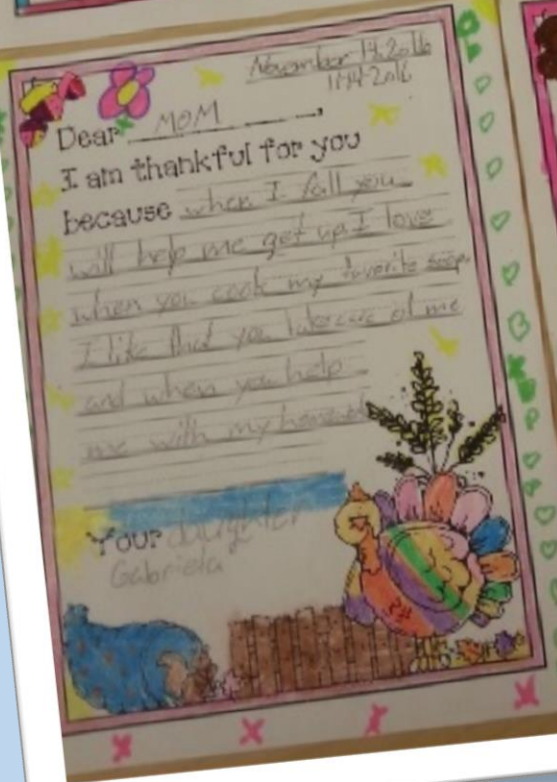 November 14, 2016
11-14-2016
Dear MOM,
I am thankful for you
because when I fall you
will help me get up I love
when you cook my favorite soop.
I like that you take care of me
and when you help
me with my homework
Your daughter
Gabriela